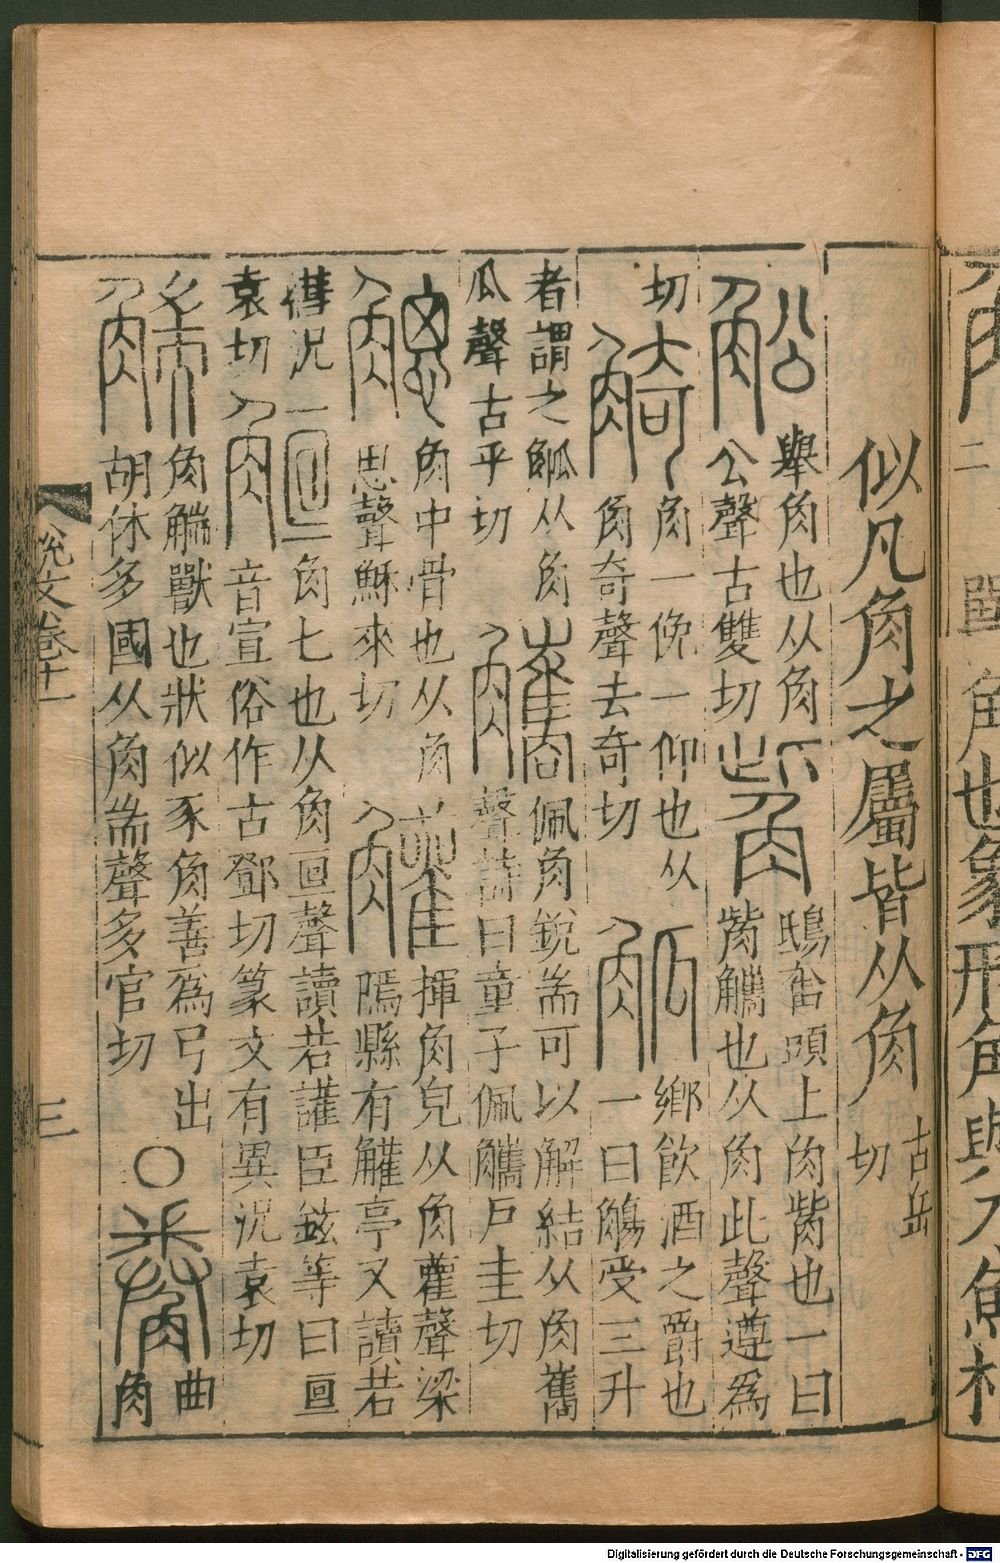 獸角也象形角與刀魚相
似凡角之屬皆从角 古岳
切
舉角也从角 觜 鴟奮頭上角觜也一曰
公聲古雙切 觜觿也从角此聲遵爲
切 觭 角一俛一仰也从 觚 鄉飲酒之爵也
角奇聲去奇切 一曰觴受三升
者謂之觚从角 觿 佩角銳耑可以解結从角巂
瓜聲古乎切 聲詩曰童子佩觿戶圭切
䚡 角中骨也从角 䚭 揮角皃从角雚聲梁
思聲穌來切 隱縣有䚭亭又讀若
況 䚙 角七也从角亘聲讀若讙臣鉉等曰亘
袁切 音宣俗作古鄧切篆文有異況袁切
觹 角觹獸也狀似豕角善爲弓出 ○ 觠 曲
胡休多國从角耑聲多官切 角
說文卷十一
三
Digitalisierung gefördert durch die Deutsche Forschungsgemeinschaft - DFG